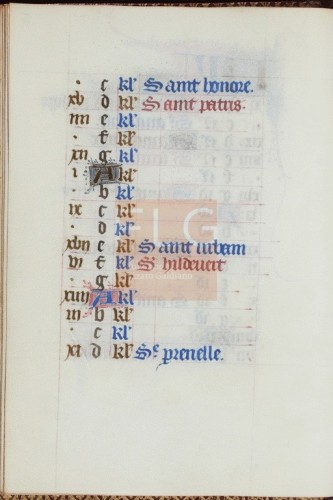 . c kl' Saint honore.
xv d kl' Saint patris.
iiii e kl'
. f kl'
xii g kl'
i A kl'
. b kl'
ix c kl'
. d kl'
xvii e kl' Saint urbain
vi f kl' S' hildevert
. g kl'
xiiii A kl'
iii b kl'
. c kl'
xi d kl' Se prenelle.
FLG